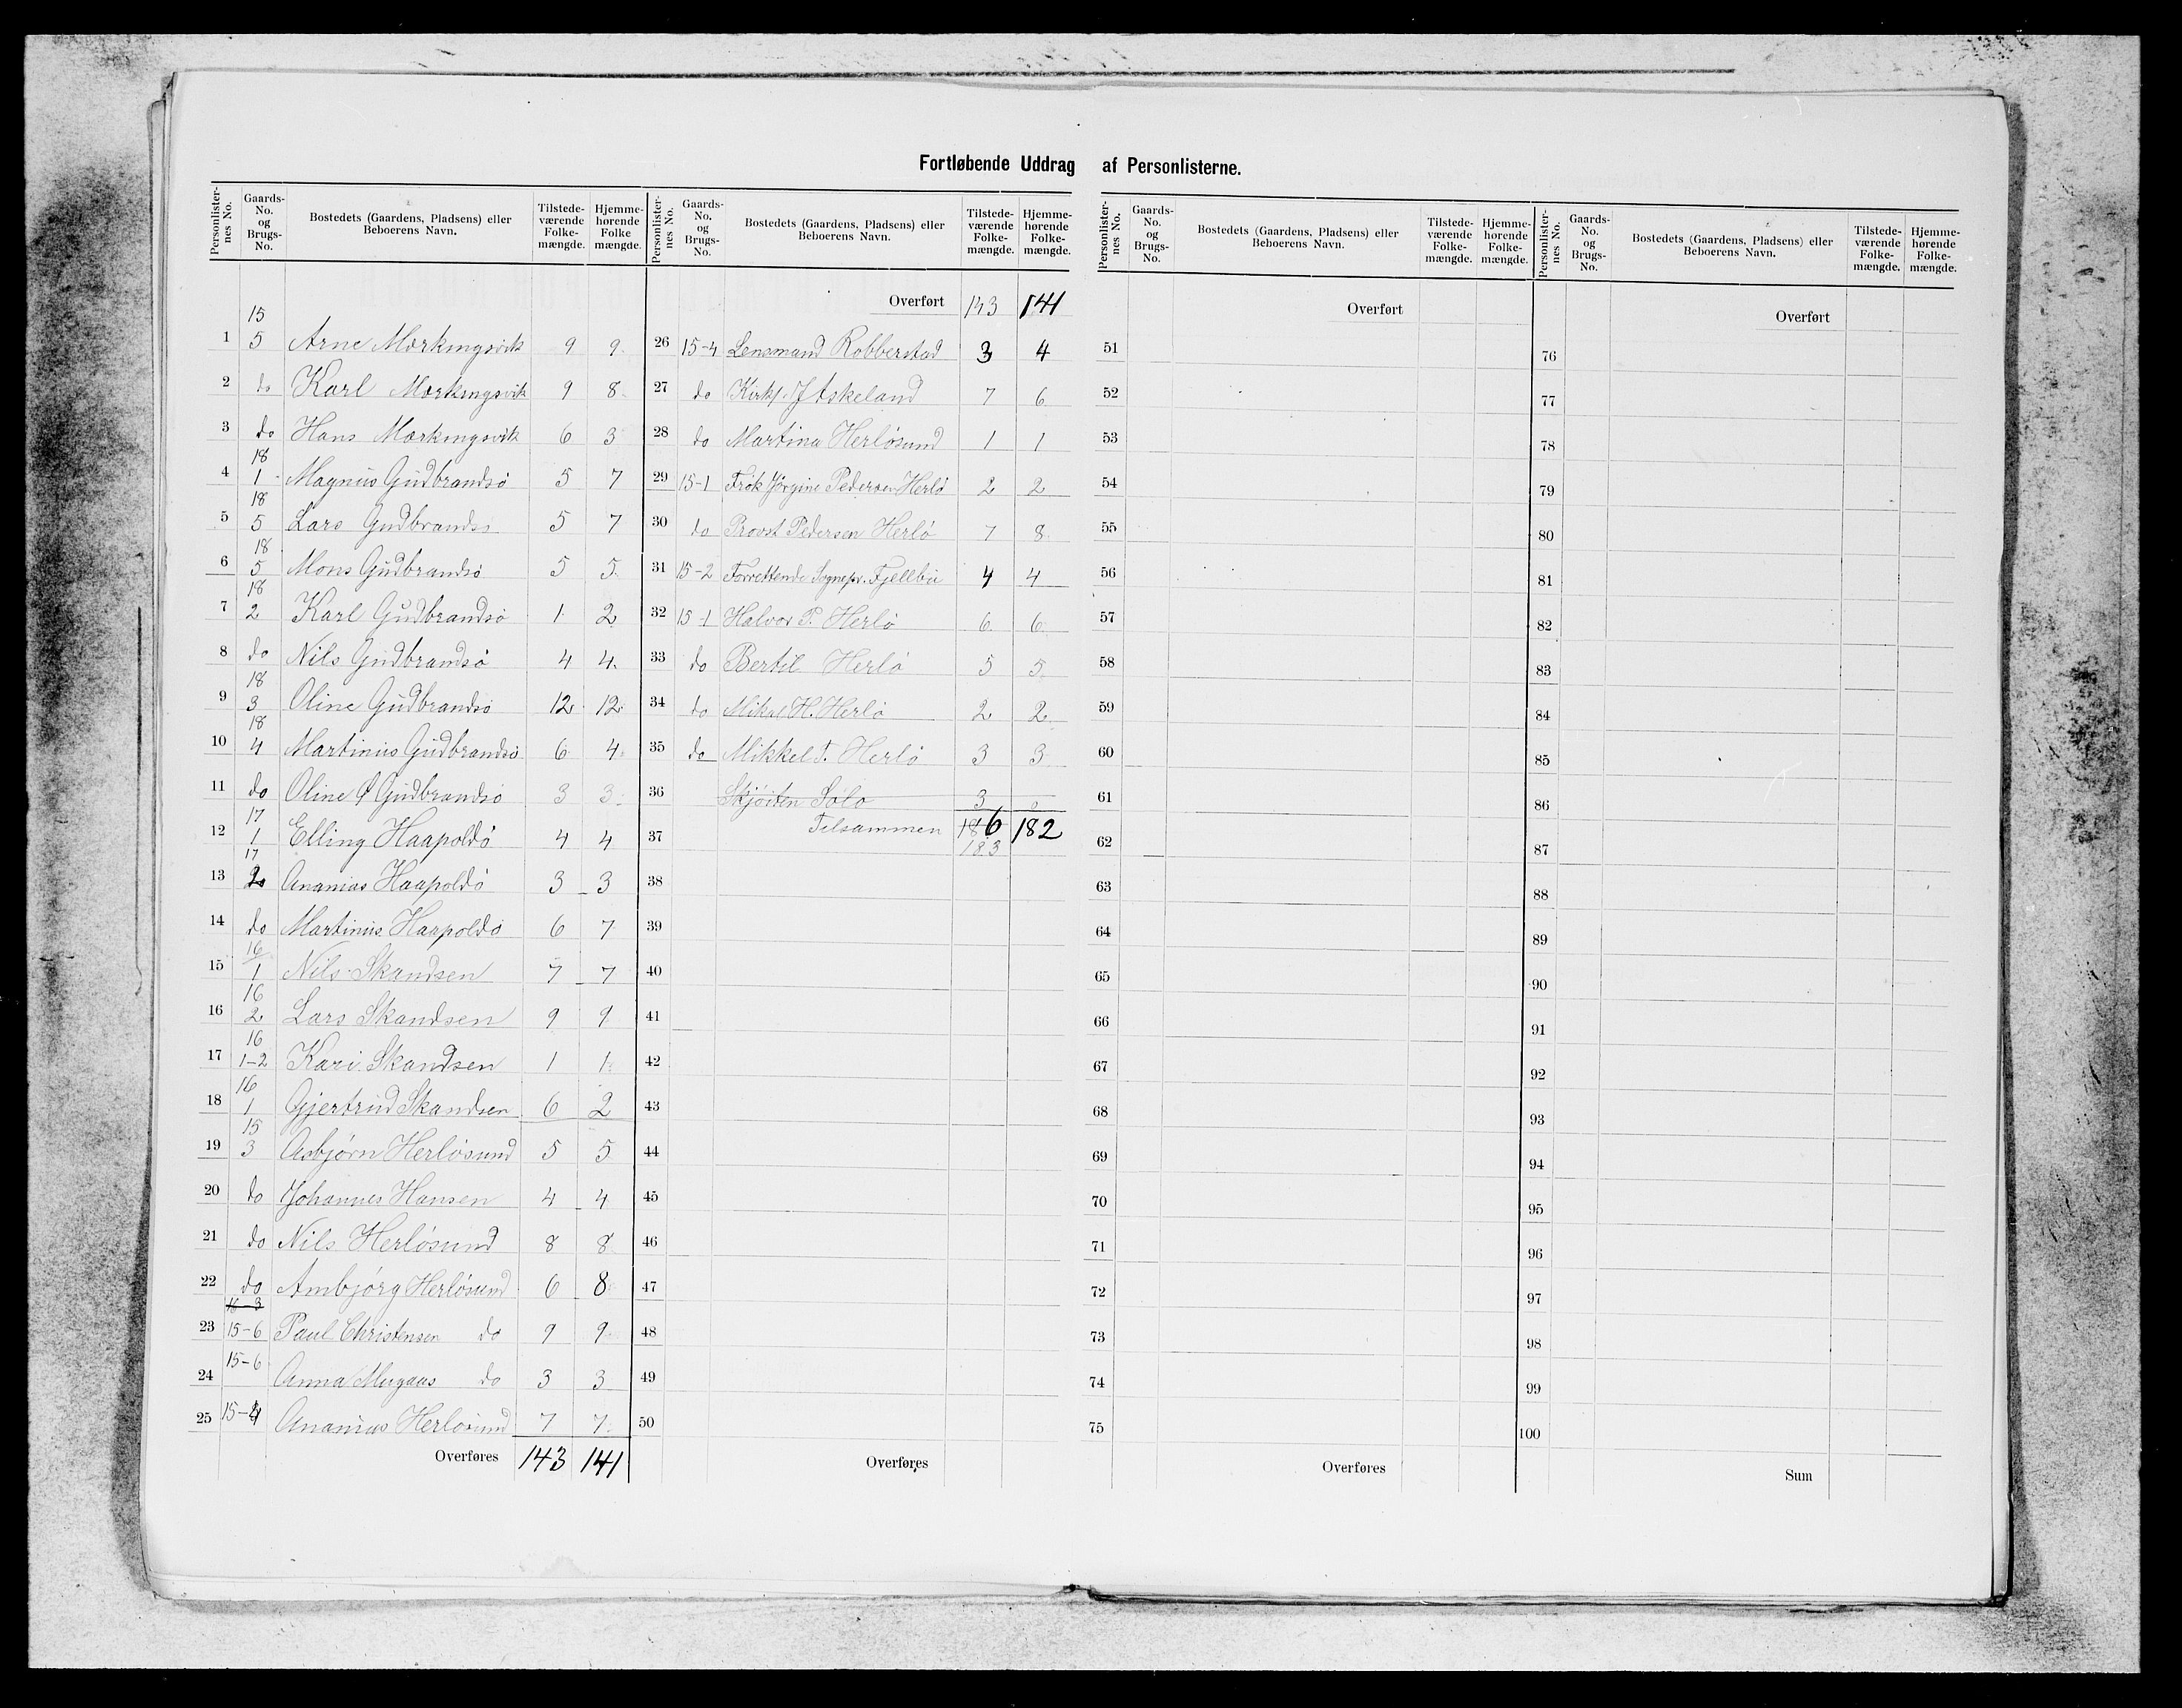 Fortløbende Uddrag af Personlisterne.
Personlister-nes No. | Gaards-No. og Brugs-No. | Bostedets (Gaardens, Pladsens) eller Beboerens Navn. | Tilstede-værende Folke-mængde. | Hjemme-hørende Folke mængde.
1 | 15 5 | Arne Mørkingsvik | 9 | 9
2 | do | Karl Mørkingsvik | 9 | 8
3 | do | Hans Mørkingsvik | 6 | 3
4 | 18 1 | Magnus Gudbrandsö | 5 | 7
5 | 18 5 | Lars Gudbrandsö | 5 | 7
6 | 18 5 | Mons Gudbrandsö | 5 | 5
7 | 18 2 | Karl Gudbrandsö | 1 | 2
8 | do | Nils Gudbrandsö | 4 | 4
9 | 18 3 | Oline Gudbrandsö | 12 | 12
10 | 18 4 | Martinus Gudbrandsö | 6 | 4
11 | do | Oline Ø Gudbrandsö | 3 | 3
12 | 17 1 | Elling Haapoldö | 4 | 4
13 | 17 2 | Ananias Haapoldö | 3 | 3
14 | do | Martinus Haapoldö | 6 | 7
15 | 16 1 | Nils Skandsen | 7 | 7
16 | 16 2 | Lars Skandsen | 9 | 9
17 | 16 1-2 | Kari Skandsen | 1 | 1
18 | 16 1 | Gjertrud Skandsen | 6 | 2
19 | 15 3 | Asbjörn Herlösund | 5 | 5
20 | do | Johannes Hansen | 4 | 4
21 | do | Nils Herlösund | 8 | 8
22 | do | Ambjörg Herlösund | 6 | 8
23 | 16-3 15-6 | Paul Christensen do | 9 | 9
24 | 15-6 | Anna Mugaas do | 3 | 3
25 | 15-4 | Ananias Herlösund | 7 | 7
Overføres | 143 | 141
Personlister-nes No. | Gaards-No. og Brugs-No. | Bostedets (Gaardens, Pladsens) eller Beboerens Navn. | Tilstede-værende Folke-mængde. | Hjemme-hørende Folke-mængde.
Overført | 143 | 141
26 | 15-4 | Lensmand Robberstad | 3 | 4
27 | do | Kirks. J Askeland | 7 | 6
28 | do | Martina Herlösund | 1 | 1
29 | 15-1 | Frøk Jörgine Pedersen Herlö | 2 | 2
30 | do | Provst Pedersen Herlö | 7 | 8
31 | 15-2 | Forrettende Sognepr. Fjellbu | 4 | 4
32 | 15-1 | Halvor P. Herlö | 6 | 6
33 | do | Bertil Herlö | 5 | 5
34 | do | Mikal H. Herlö | 2 | 2
35 | do | Mikkel T. Herlö | 3 | 3
36 | Skjöiten Solo | 3 | 0
37 | Tilsammen | 186 | 182
183
38
39
40
41
42
43
44
45
46
47
48
49
50
Overføres
Personlister-nes No. | Gaards-No. og Brugs-No. | Bostedets (Gaardens, Pladsens) eller Beboerens Navn. | Tilstede-værende Folke-mængde. | Hjemme-hørende Folke-mængde.
Overført
51
52
53
54
55
56
57
58
59
60
61
62
63
64
65
66
67
68
69
70
71
72
73
74
75
Overføres
Personlister-nes No. | Gaards-No. og Brugs-No. | Bostedets (Gaardens, Pladsens) eller Beboerens Navn. | Tilstede-værende Folke-mængde. | Hjemme-hørende Folke-mængde.
Overført
76
77
78
79
80
81
82
83
84
85
86
87
88
89
90
91
92
93
94
95
96
97
98
99
100
Sum